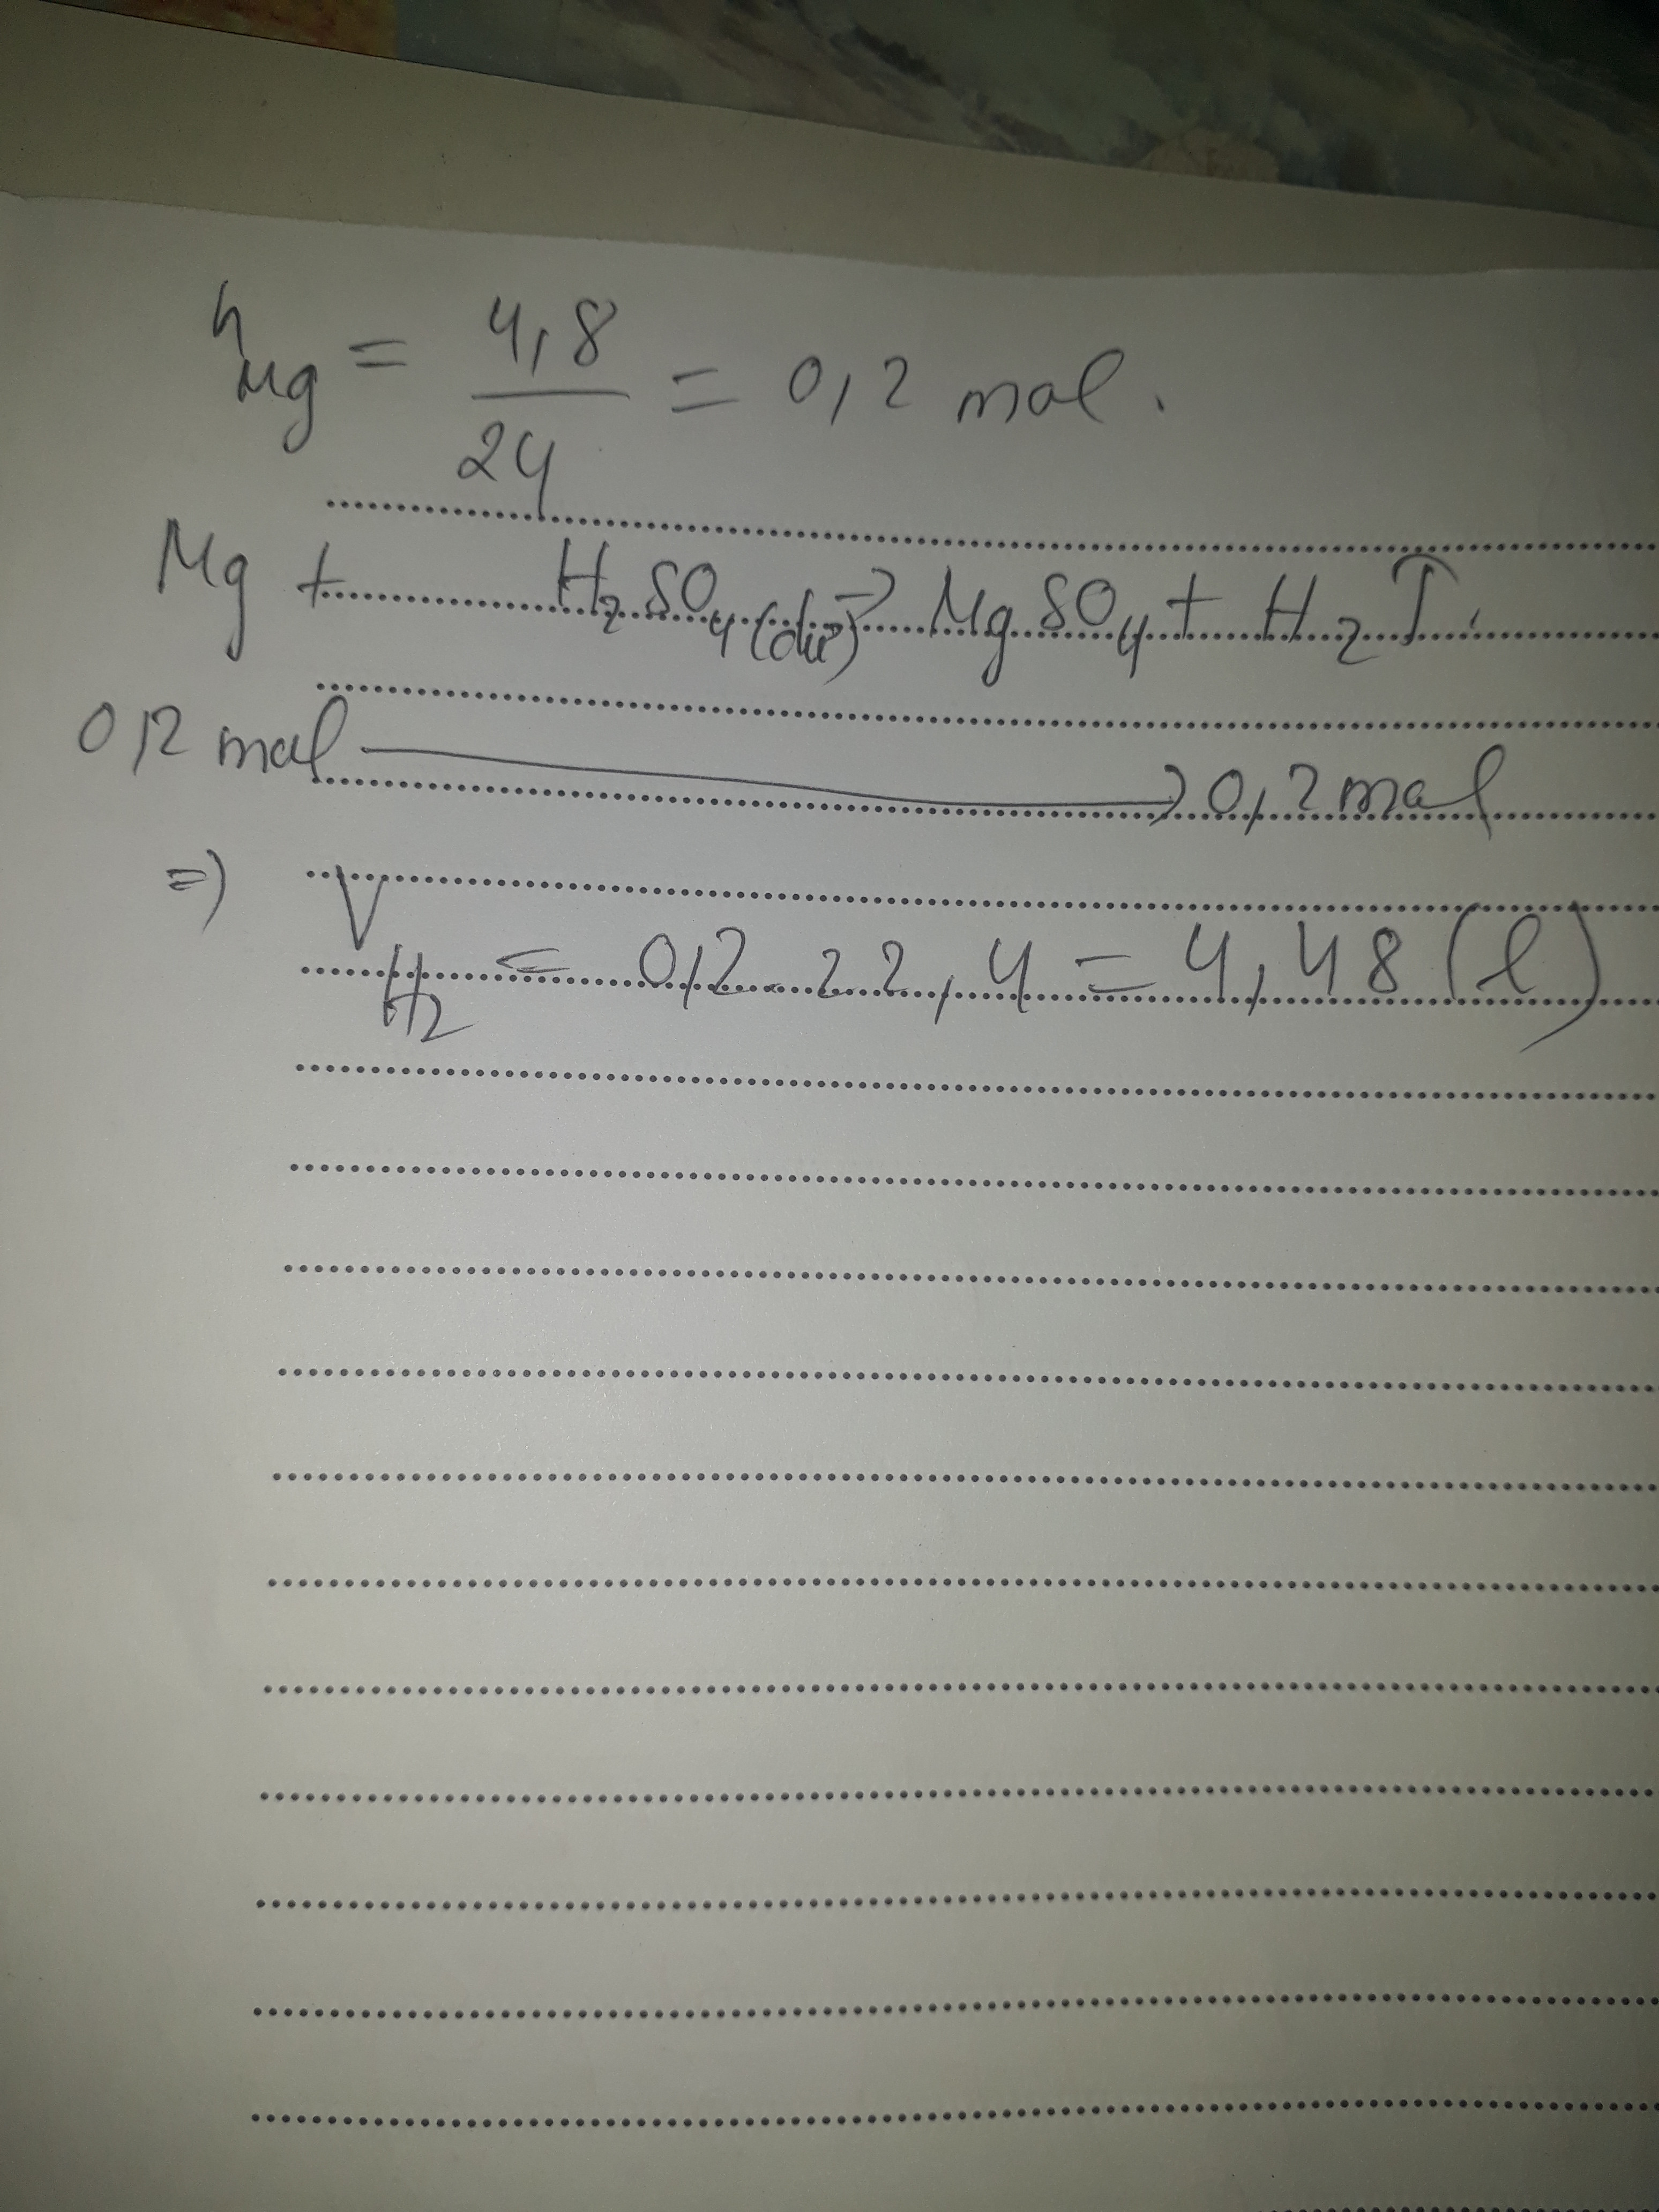 nMg = 4,8/24 = 0,2 mol.
Mg + H2SO4(dư) → MgSO4 + H2↑.
0,2 mol → 0,2 mol
=) VH2 = 0,2 . 22,4 = 4,48 (l)